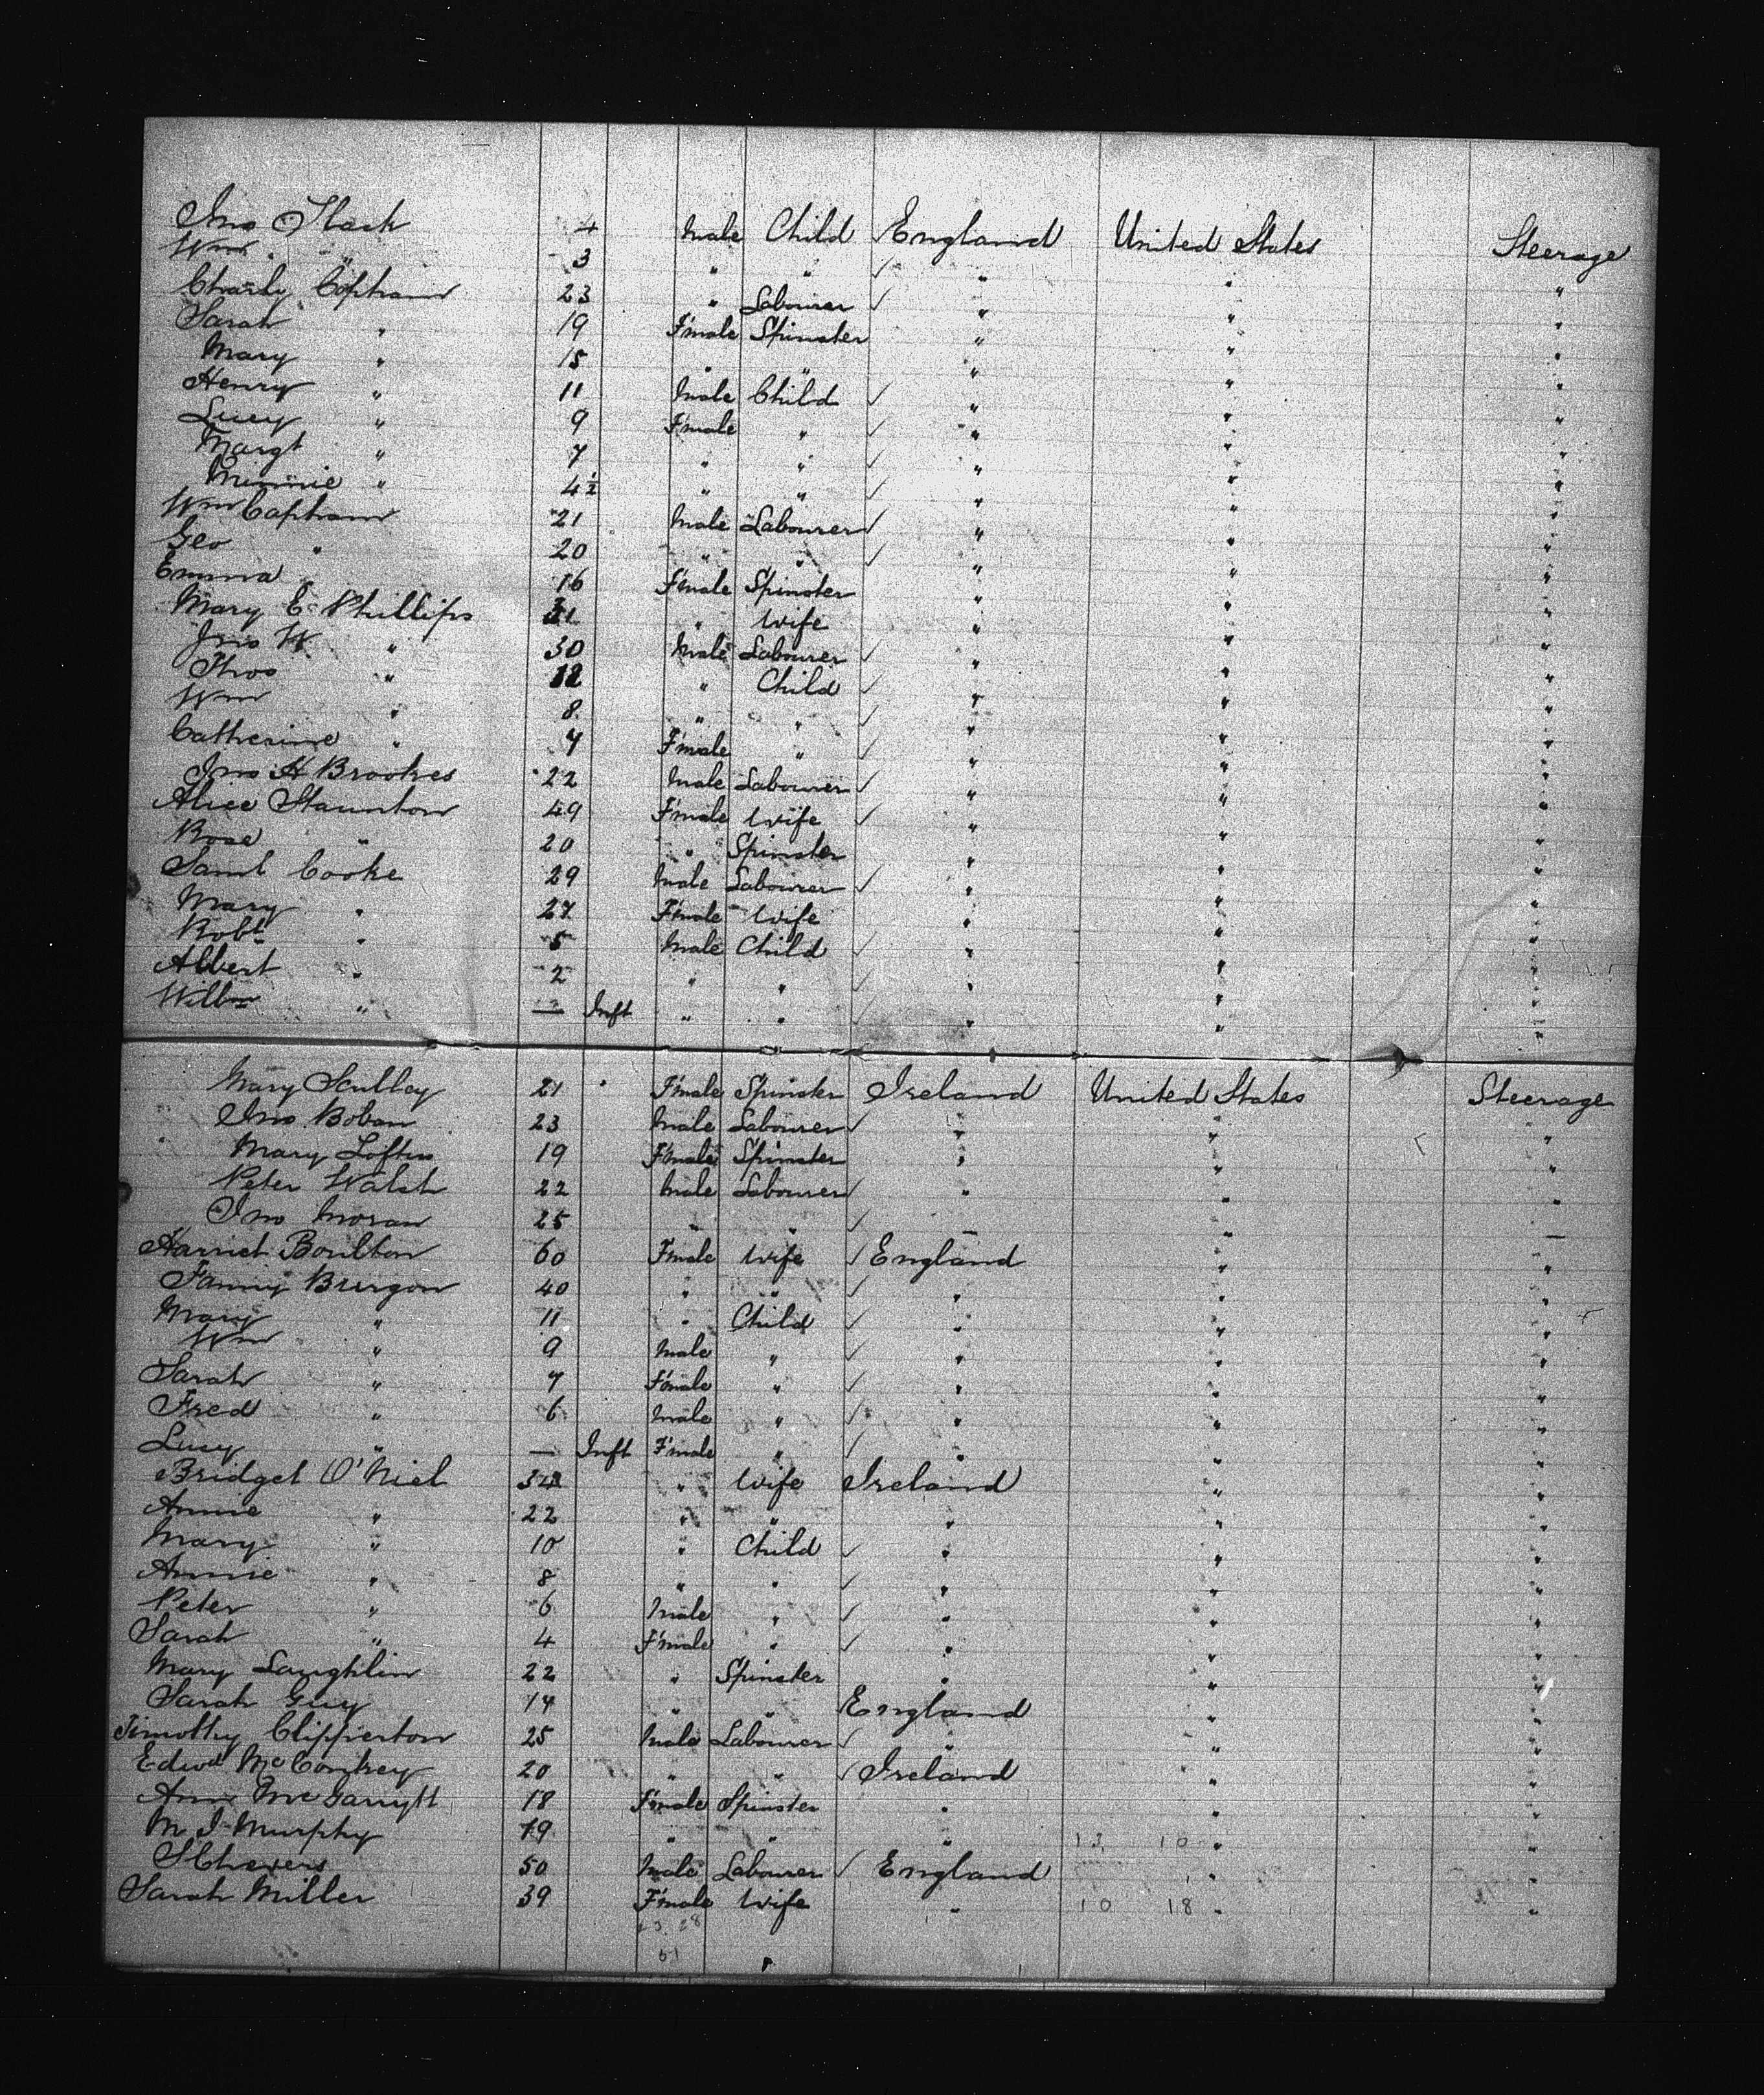 Jno Slack 4 Male Child England United States Steerage
Wm " 3 " " " " "
Charly Capham 23 " Labourer " " "
Sarah " 19 F'male Spinster " " "
Mary " 15 " " " " "
Henry " 11 Male Child " " "
Lucy " 9 F'male " " " "
Margt " 7 " " " " "
Minnie " 4½ " " " " "
Wm Capham 21 Male Labourer " " "
Geo " 20 " " " " "
Emma 16 F'male Spinster " " "
Mary E Phillips 31 " Wife " " "
Jno W " 30 Male Labourer " " "
Thos " 12 " Child " " "
Wm " 8 " " " " "
Catherine " 7 F'male " " " "
Jno H Brookes 22 Male Labourer " " "
Alice Staunton 49 F'male Wife " " "
Rose " 20 " Spinster " " "
Saml Cooke 29 Male Labourer " " "
Mary " 27 F'male Wife " " "
Robt " 5 Male Child " " "
Albert " 2 " " " " "
" — Inft " " " " "
Mary Scully 21 F'male Spinster Ireland United States Steerage
Jno Boban 23 Male Labourer " " "
Mary Loftus 19 F'male Spinster " " "
Peter Walsh 22 Male Labourer " " "
Jno Moran 25 " " " "
Harriet Boulton 60 F'male Wife England " "
Fanny Burgon 40 " " " " "
Mary " 11 " Child " " "
Wm " 9 Male " " " "
Sarah " 7 F'male " " " "
Fred " 6 Male " " " "
Lucy " — Inft F'male " " " "
Bridget O'Niel 34 " Wife Ireland " "
Annie " 22 " " " " "
Mary " 10 " Child " " "
Annie " 8 " " " " "
Peter " 6 Male " " " "
Sarah " 4 F'male " " " "
Mary Laughlin 22 " Spinster " " "
Sarah Guy 14 " " England " "
Timothy Clipperton 25 Male Labourer " " "
Edwd 20 " " Ireland " "
Ann McGarrytt 18 F'male Spinster " " "
M J Murphy 19 " " " 13 10 " "
50 Male Labourer England " "
Sarah Miller 39 F'male Wife " 10 18 " "
23 28
51